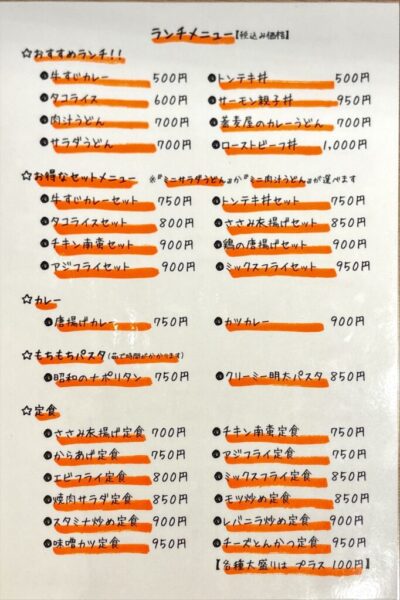 ランチメニュー【税込み価格】
☆おすすめランチ!!
●牛すじカレー 500円
●トンテキ丼 500円
●タコライス 600円
●サーモン親子丼 950円
●肉汁うどん 700円
●蕎麦屋のカレーうどん 700円
●サラダうどん 700円
●ローストビーフ丼 1,000円
☆お得なセットメニュー ※『ミニサラダうどん』か『ミニ肉汁うどん』が選べます
●牛すじカレーセット 750円
●トンテキ丼セット 750円
●タコライスセット 800円
●ささみ衣揚げセット 850円
●チキン南蛮セット 900円
●鶏の唐揚げセット 900円
●アジフライセット 900円
●ミックスフライセット 950円
☆カレー
●唐揚げカレー 750円
●カツカレー 900円
☆もちもちパスタ(茹で時間がかかります)
●昭和のナポリタン 750円
●クリーミー明太パスタ 850円
☆定食
●ささみ衣揚げ定食 700円
●チキン南蛮定食 750円
●からあげ定食 750円
●アジフライ定食 750円
●エビフライ定食 800円
●ミックスフライ定食 850円
●焼肉サラダ定食 850円
●モツ炒め定食 850円
●スタミナ炒め定食 900円
●レバニラ炒め定食 900円
●味噌カツ定食 950円
●チーズとんかつ定食 950円
【各種大盛りは プラス 100円】